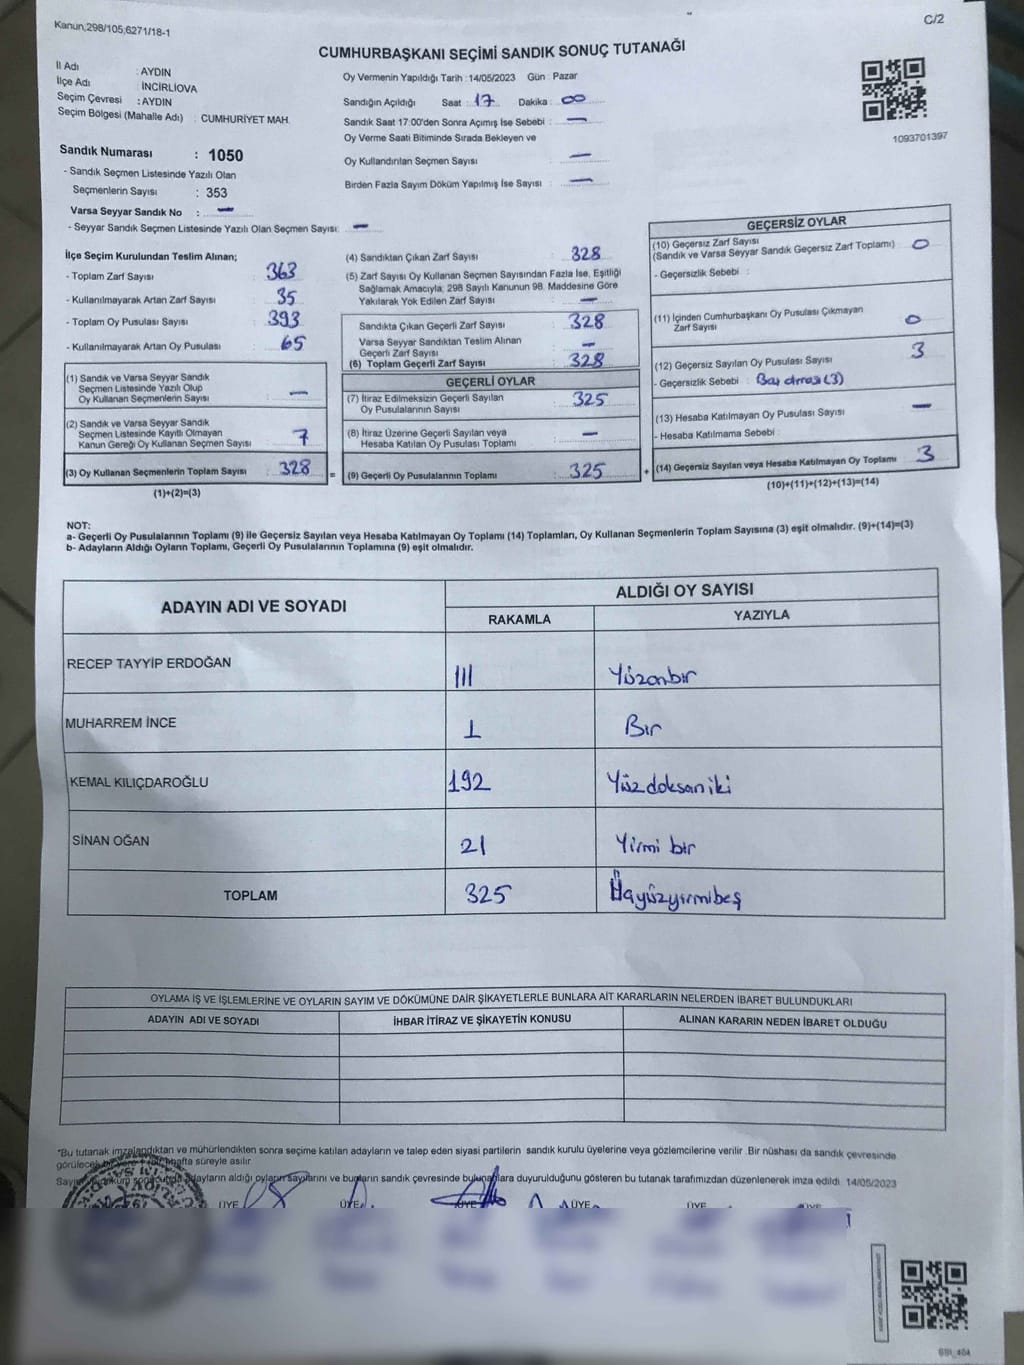 Kanun,298/105,6271/18-1
C/2
CUMHURBAŞKANI SEÇİMİ SANDIK SONUÇ TUTANAĞI
İl Adı : AYDIN
İlçe Adı : İNCİRLİOVA
Seçim Çevresi : AYDIN
Seçim Bölgesi (Mahalle Adı) : CUMHURİYET MAH.
Oy Vermenin Yapıldığı Tarih : 14/05/2023 Gün : Pazar
Sandığın Açıldığı Saat : 17 Dakika : 00
Sandık Saat 17:00'den Sonra Açımış İse Sebebi : —
Oy Verme Saati Bitiminde Sırada Bekleyen ve
Oy Kullandırılan Seçmen Sayısı : —
Birden Fazla Sayım Döküm Yapılmış İse Sayısı : —
1093701397
Sandık Numarası : 1050
- Sandık Seçmen Listesinde Yazılı Olan
Seçmenlerin Sayısı : 353
Varsa Seyyar Sandık No : —
- Seyyar Sandık Seçmen Listesinde Yazılı Olan Seçmen Sayısı: —
İlçe Seçim Kurulundan Teslim Alınan;
- Toplam Zarf Sayısı : 363
- Kullanılmayarak Artan Zarf Sayısı : 35
- Toplam Oy Pusulası Sayısı : 393
- Kullanılmayarak Artan Oy Pusulası : 65
(1) Sandık ve Varsa Seyyar Sandık
Seçmen Listesinde Yazılı Olup
Oy Kullanan Seçmenlerin Sayısı : —
(2) Sandık ve Varsa Seyyar Sandık
Seçmen Listesinde Kayıtlı Olmayan
Kanun Gereği Oy Kullanan Seçmen Sayısı : 7
(3) Oy Kullanan Seçmenlerin Toplam Sayısı : 328
(1)+(2)=(3)
(4) Sandıktan Çıkan Zarf Sayısı : 328
(5) Zarf Sayısı Oy Kullanan Seçmen Sayısından Fazla İse, Eşitliği
Sağlamak Amacıyla; 298 Sayılı Kanunun 98. Maddesine Göre
Yakılarak Yok Edilen Zarf Sayısı : —
Sandıkta Çıkan Geçerli Zarf Sayısı : 328
Varsa Seyyar Sandıktan Teslim Alınan
Geçerli Zarf Sayısı : —
(6) Toplam Geçerli Zarf Sayısı : 328
GEÇERLİ OYLAR
(7) İtiraz Edilmeksizin Geçerli Sayılan
Oy Pusulalarının Sayısı : 325
(8) İtiraz Üzerine Geçerli Sayılan veya
Hesaba Katılan Oy Pusulası Toplamı : —
= (9) Geçerli Oy Pusulalarının Toplamı : 325
GEÇERSİZ OYLAR
(10) Geçersiz Zarf Sayısı
(Sandık ve Varsa Seyyar Sandık Geçersiz Zarf Toplamı) : 0
- Geçersizlik Sebebi :
(11) İçinden Cumhurbaşkanı Oy Pusulası Çıkmayan
Zarf Sayısı 0
(12) Geçersiz Sayılan Oy Pusulası Sayısı 3
- Geçersizlik Sebebi : Boş (3)
(13) Hesaba Katılmayan Oy Pusulası Sayısı —
- Hesaba Katılmama Sebebi :
+ (14) Geçersiz Sayılan veya Hesaba Katılmayan Oy Toplamı 3
(10)+(11)+(12)+(13)=(14)
NOT:
a- Geçerli Oy Pusulalarının Toplamı (9) ile Geçersiz Sayılan veya Hesaba Katılmayan Oy Toplamı (14) Toplamları, Oy Kullanan Seçmenlerin Toplam Sayısına (3) eşit olmalıdır. (9)+(14)=(3)
b- Adayların Aldığı Oyların Toplamı, Geçerli Oy Pusulalarının Toplamına (9) eşit olmalıdır.
ADAYIN ADI VE SOYADI
ALDIĞI OY SAYISI
RAKAMLA YAZIYLA
RECEP TAYYİP ERDOĞAN 111 Yüzonbir
MUHARREM İNCE 1 Bir
KEMAL KILIÇDAROĞLU 192 Yüzdoksaniki
SİNAN OĞAN 21 Yirmi bir
TOPLAM 325 Üçyüzyirmibeş
OYLAMA İŞ VE İŞLEMLERİNE VE OYLARIN SAYIM VE DÖKÜMÜNE DAİR ŞİKAYETLERLE BUNLARA AİT KARARLARIN NELERDEN İBARET BULUNDUKLARI
ADAYIN ADI VE SOYADI İHBAR İTİRAZ VE ŞİKAYETİN KONUSU ALINAN KARARIN NEDEN İBARET OLDUĞU
*Bu tutanak imzalandıktan ve mühürlendikten sonra seçime katılan adayların ve talep eden siyasi partilerin sandık kurulu üyelerine veya gözlemcilerine verilir. Bir nüshası da sandık çevresinde
görülecek hafta süreyle asılır.
Sayım sonucunda adayların aldığı oyların sayılarını ve bunların sandık çevresinde bulunanlara duyurulduğunu gösteren bu tutanak tarafımızdan düzenlenerek imza edildi. 14/05/2023
ÜYE ÜYE ÜYE ÜYE ÜYE ÜYE